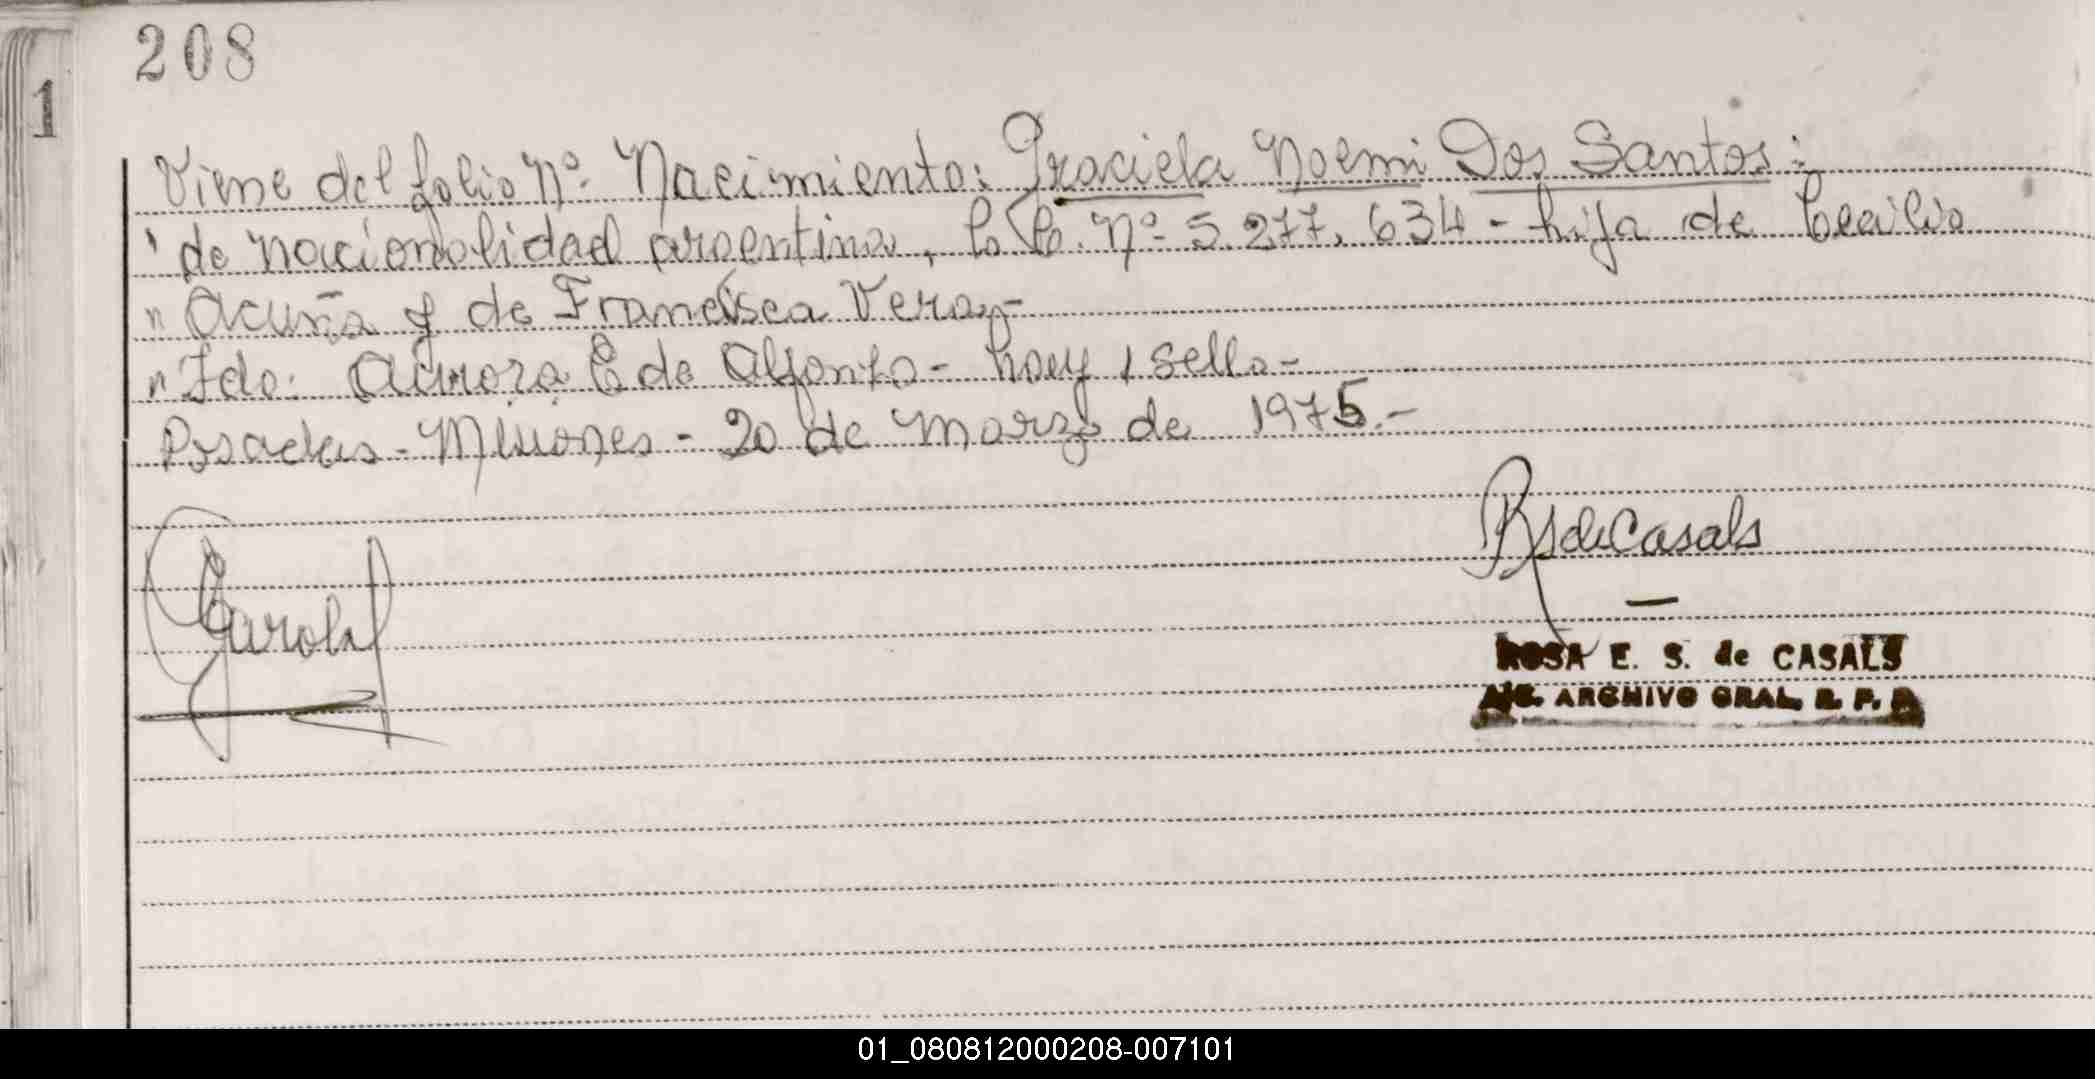 208
1
Viene del folio Nº. Nacimiento: Graciela Noemi Dos Santos:
" de nacionalidad argentina, C. C. Nº 5.277.634 - hija de Cecilio
" Acuña y de Francisca Vera,-
" Fdo: Aurora C de Alfonso - hay 1 sello -
Posadas - Misiones - 20 de Marzo de 1975.-
RSdeCasals
ROSA E. S. de CASALS
ARCHIVO GRAL. R. P. P.
01_080812000208-007101